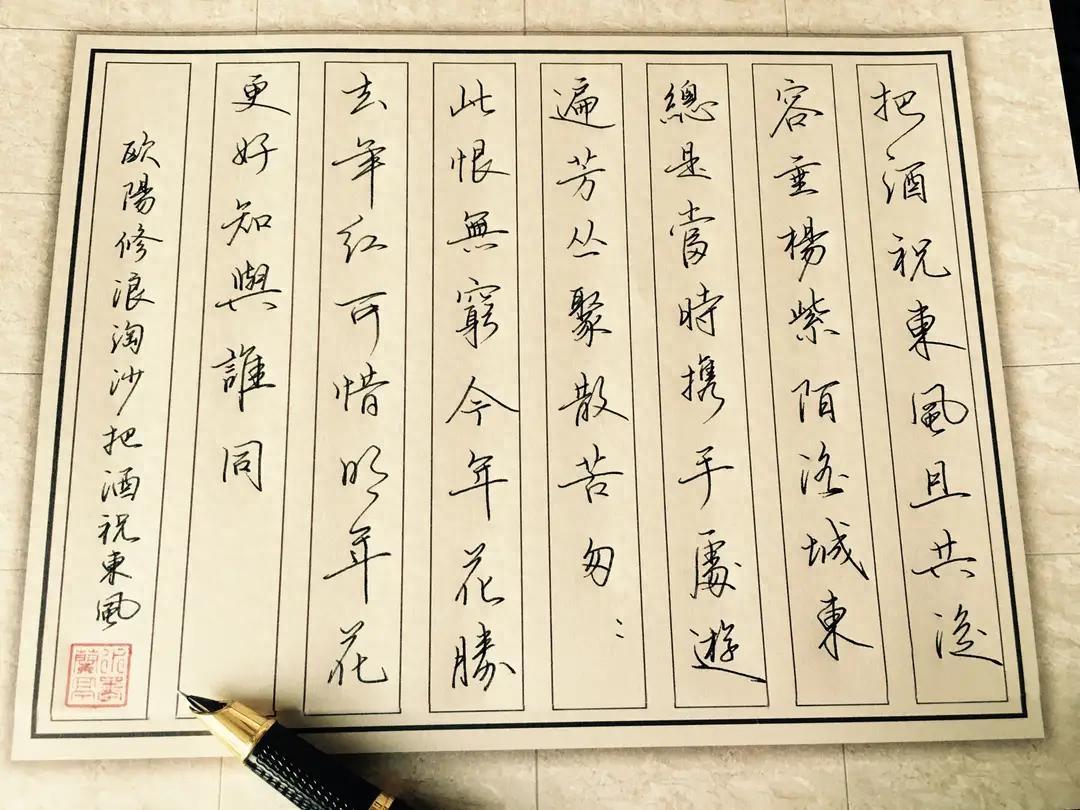 把酒祝東風且共從
容垂楊紫陌洛城東
總是當時携手處遊
遍芳丛聚散苦匆：
此恨無窮今年花勝
去年紅可惜明年花
更好知與誰同
欧陽修浪淘沙把酒祝東風